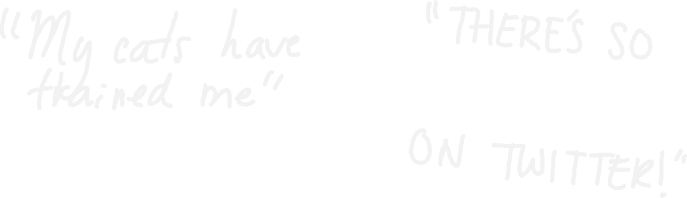 "My cats have
trained me"
"THERE'S SO
ON TWITTER!"